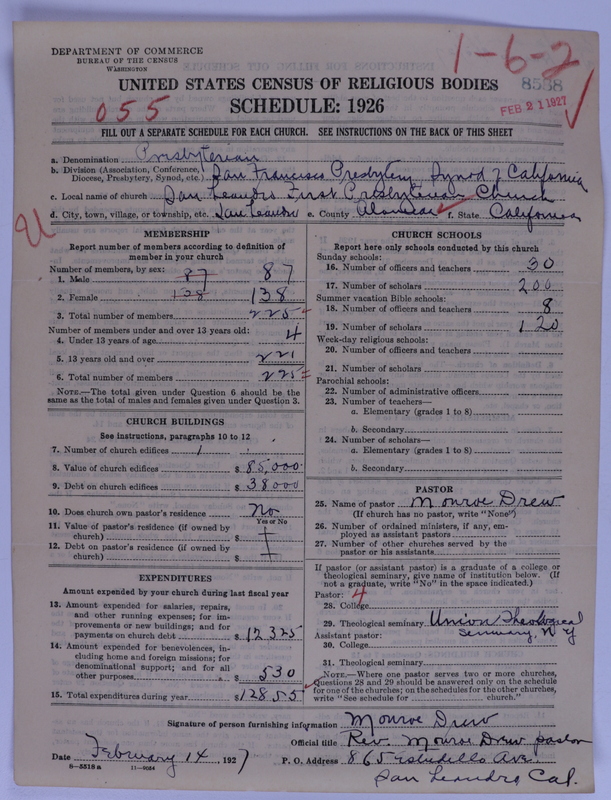 DEPARTMENT OF COMMERCE
BUREAU OF THE CENSUS
WASHINGTON
1-6-2
8538
UNITED STATES CENSUS OF RELIGIOUS BODIES
055
SCHEDULE: 1926
FEB 21 1927
FILL OUT A SEPARATE SCHEDULE FOR EACH CHURCH. SEE INSTRUCTIONS ON THE BACK OF THIS SHEET
a. Denomination Presbyterian
b. Division (Association, Conference, Diocese, Presbytery, Synod, etc.) San Francisco Presbytery Synod of California
c. Local name of church San Leandro First Presbyterian Church
d. City, town, village, or township, etc. San Leandro e. County Alameda f. State California
U
MEMBERSHIP
Report number of members according to definition of
member in your church
Number of members, by sex:
1. Male 87 87
2. Female 138 138
3. Total number of members 225
Number of members under and over 13 years old:
4. Under 13 years of age 4
5. 13 years old and over 221
6. Total number of members 225
NOTE.—The total given under Question 6 should be
same as the total of males and females given under Question 3.
CHURCH BUILDINGS
See instructions, paragraphs 10 to 12
7. Number of church edifices 1
8. Value of church edifices $ 85,000
9. Debt on church edifices $ 38000
10. Does church own pastor's residence No
Yes or No
11. Value of pastor's residence (if owned by
church) $
12. Debt on pastor's residence (if owned by
church) $
EXPENDITURES
Amount expended by your church during last fiscal year
13. Amount expended for salaries, repairs,
and other running expenses; for im-
provements or new buildings; and for
payments on church debt $ 12325
14. Amount expended for benevolences, in-
cluding home and foreign missions; for
denominational support; and for all
other purposes $ 530
15. Total expenditures during year $ 12855
CHURCH SCHOOLS
Report here only schools conducted by this church
Sunday schools:
16. Number of officers and teachers 30
17. Number of scholars 200
Summer vacation Bible schools:
18. Number of officers and teachers 8
19. Number of scholars 120
Week-day religious schools:
20. Number of officers and teachers
21. Number of scholars
Parochial schools:
22. Number of administrative officers
23. Number of teachers—
a. Elementary (grades 1 to 8)
b. Secondary
24. Number of scholars—
a. Elementary (grades 1 to 8)
b. Secondary
PASTOR
25. Name of pastor Monroe Drew
(If church has no pastor, write "None")
26. Number of ordained ministers, if any, em-
ployed as assistant pastors
27. Number of other churches served by the
pastor or his assistants
If pastor (or assistant pastor) is a graduate of a college or
theological seminary, give name of institution below. (If
not a graduate, write "No" in the space indicated.)
Pastor: 4
28. College
29. Theological seminary Union Theological
Assistant pastor: Seminary, N Y
30. College
31. Theological seminary
NOTE.—Where one pastor serves two or more churches,
Questions 28 and 29 should be answered only on the schedule
for one of the churches; on the schedules for the other churches,
write "See schedule for church."
Signature of person furnishing information Monroe Drew
Official title Rev. Monroe Drew pastor
Date February 14 1927 P. O. Address 865 Estudillo Ave.
8—5518 a 11—9054
San Leandro Cal.